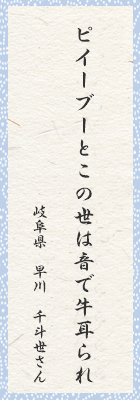 ピイーブーとこの世は音で牛耳られ
岐阜県 早川 千斗世さん